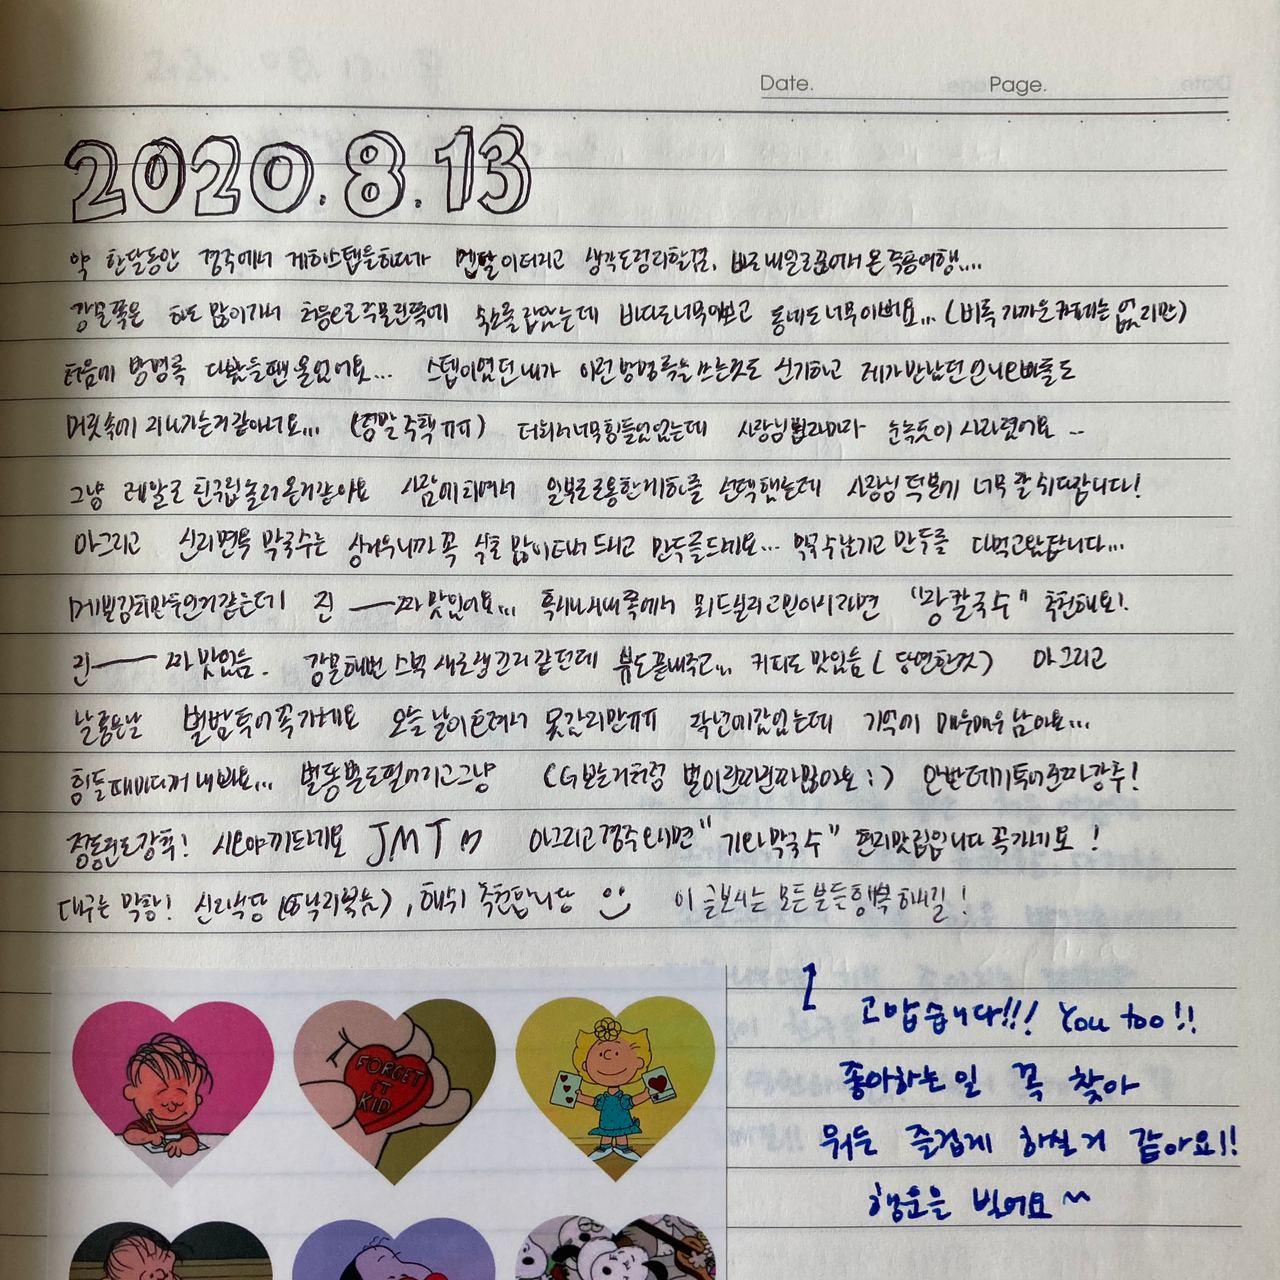 Date. Page.
2020.8.13
약 한달동안 경주에서 게하스텝을하다가 멘탈이터지고 생각도정리할겸, 바로내일로끊어서온 즉흥여행....
강릉쪽은 하도 많이가서 처음으로 주문진쪽에 숙소를잡았는데 바다도너무이쁘고 동네도너무이뻐요... (비록 가까운카페는없지만)
처음에 방명록 다봤을땐 울었어요... 스텝이였던내가 이런방명록을쓰는것도 신기하고 제가만났던언니오빠들도
머릿속에 지나가는거같아서요... (정말주책ㅠㅠ) 더워서너무힘들었었는데 사장님 눈녹듯이 사라졌어요 ..
그냥 레알로친구집놀러온거같아요 사람에치여서 일부로조용한게하를 선택했는데 사장님덕분에 너무잘쉬다갑니다!
아그리고 신리면옥 막국수는 싱거우니까꼭 식초 많이 만두를드세요... 막국수남기고 만두를 다먹고왔답니다...
메밀김치만두인거같은데 진 ── 짜맛있어요... 혹시나 뭐드실지고민이시라면 "장칼국수" 추천해요!
진── 짜맛있음. 강문해변 스벅 새로생긴거같던데 뷰도끝내주고... 커피도 맛있음 (당연한것) 아그리고
날좋은날 별밤투어꼭가세요 오늘 날이흐려서 못갔지만ㅠㅠ 작년에갔었는데 기억에 매우매우남아요...
힘들때마다꺼내봐요... 별똥별도떨어지고그냥 CG보는거처럼 별이 많아요 :) 안반데기투어 강추!
정동진도강추! JMT 아그리고경주오시면 "기와막국수" 찐리맛집입니다 꼭가세요 !
대구는 막창! 신리식당 , 추천합니당 이글보시는 모든분들행복해길!
고맙습니다!!! You too!!
좋아하는일 꼭 찾아
뭐든 즐겁게 하실거 같아요!!
행운을 빌어요~
FORGET IT KID